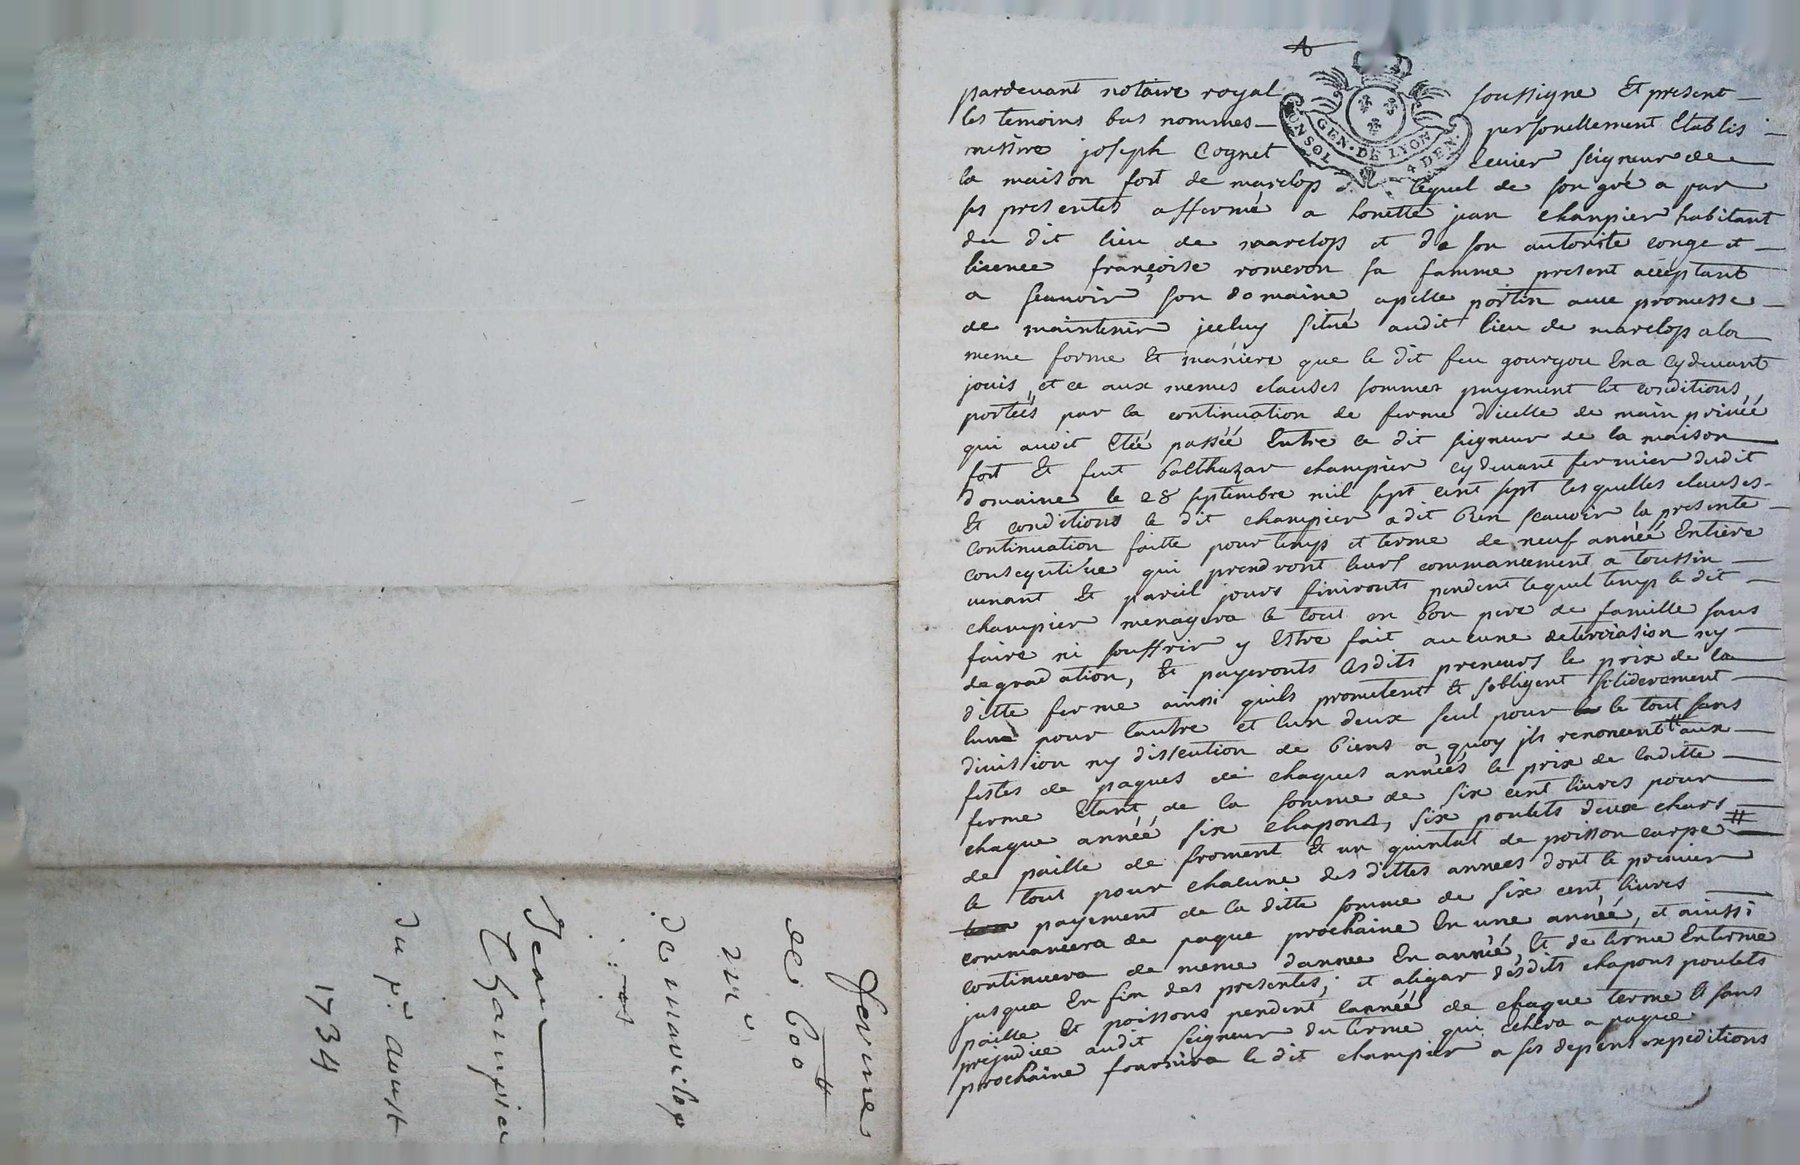 pardevant notaire royal soussigne Et present
les temoins bas nommes personellement Etablis
messire joseph Cognet Ecuier seigneur de
la maison fort de marclop lequel de son gré a par
ses presentes affermé a honette jean champier habitant
du dit lieu de marclop et de son autorite conge et
licence françoise romeron sa famme present aceptant
a scauoir son domaine apelle portin aue promesse
de maintenir jceluy situé audit lieu de marclop a la
meme forme Et maniere que le dit feu gourgou En a cydeuant
jouis, et ce aux memes clauses sommes payement Et conditions
porteés par la continuation de ferme dicelle de main priuéé
qui auoit Etéé passéé Entre le dit seigneur de la maison
fort Et feut balthazar champier cydeuant fermier dudit
domaine le 28 septembre mil sept cent sept lesquelles clauses
Et conditions le dit champier a dit bien scauoir la presente
continuation faitte pour temps et terme de neuf annéé Entiere
consequtiue qui prendront leurs commancement a toussin
uenant Et pareil jours finironts pendent lequel temps le dit
champier menagera le tout en bon pere de famille sans
faire ni souffrir y Estre fait aucune deterioration ny
degradation, Et payeronts lesdits preneurs le prix de la
ditte ferme ainsi quils prometent Et sobligent soliderement
lun pour lautre et lun deux seul pour le tout sans
diuission ny discution de biens a quoy jls renoncent aux
festes de paques de chaques annéés le prix de laditte
ferme Etant de la somme de six cent liures pour
chaque annéé six chapons, six poulets deux chars
de paille de froment Et un quintal de poisson carpe
le tout pour chacune des dittes annees dont le premier
payement de la ditte somme de six cent liures
commancera de paque prochaine En une annéé, et ainssi
continuera de meme dannee En annéé, Et de terme En terme
jusqua En fin des presentes; et a legar desdits chapons poulets
paille Et poissons pendent lannéé de chaque terme Et sans
prejudice audit seigneur du terme qui echera a paque
prochaine fournira le dit champier a ses depens expeditions
ferme
de 600 ₶
mr
de marclop
Jean
Champier
du pr aoust
1734
GEN · DE LYON
UN SOL 4 DEN.